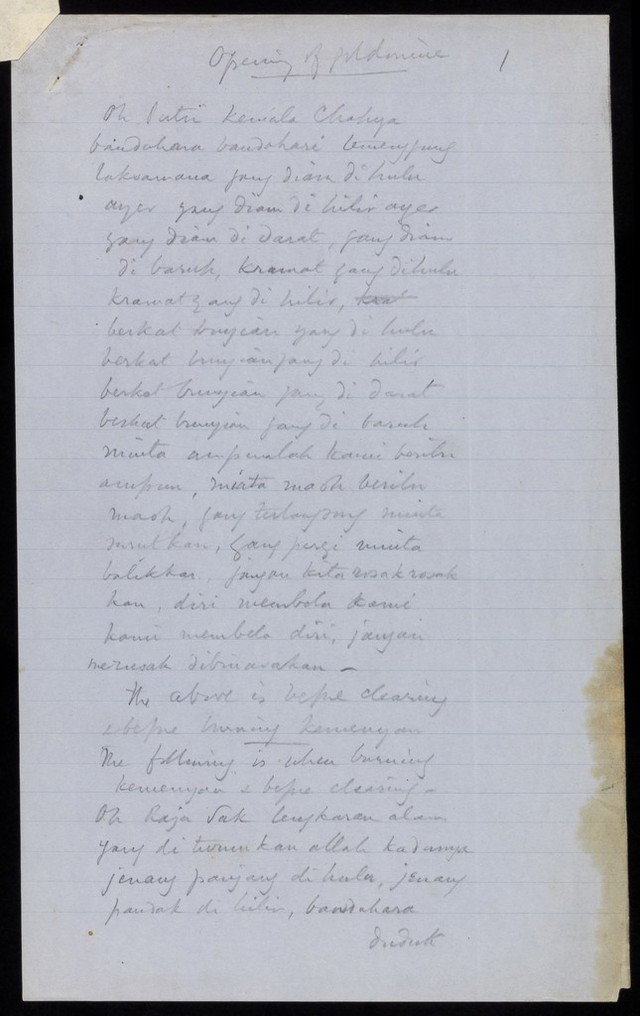 Opening of goldmine 1
Oh Putri Kemala Chahya
bandahara bandahari temenggung
laksamana yang diam di hulu
ayer yang diam di hilir ayer
yang diam di darat, yang diam
di baruh, kramat yang di hulu
kramat yang di hilir,
berkat bunyian yang di hulu
berkat bunyian yang di hilir
berkat bunyian yang di darat
berkat bunyian yang di baruh
minta ampunlah kami berilu
ampun, minta maah berilu
maah, yang minta
surutkan, yang pergi minta
balikkan, jangan kita rosak rosak
kan, diri membela kami
kami membela diri, jangan
merusak dibinasakan –
The above is before clearing
& before burning kemenyan
The following is when burning
kemenyan & before clearing –
Oh Raja Sak lengkaran alam
yang di turunkan allah kadunya
jenang panjang di hulu, jenang
pandak di hilir, bandahara
duduk